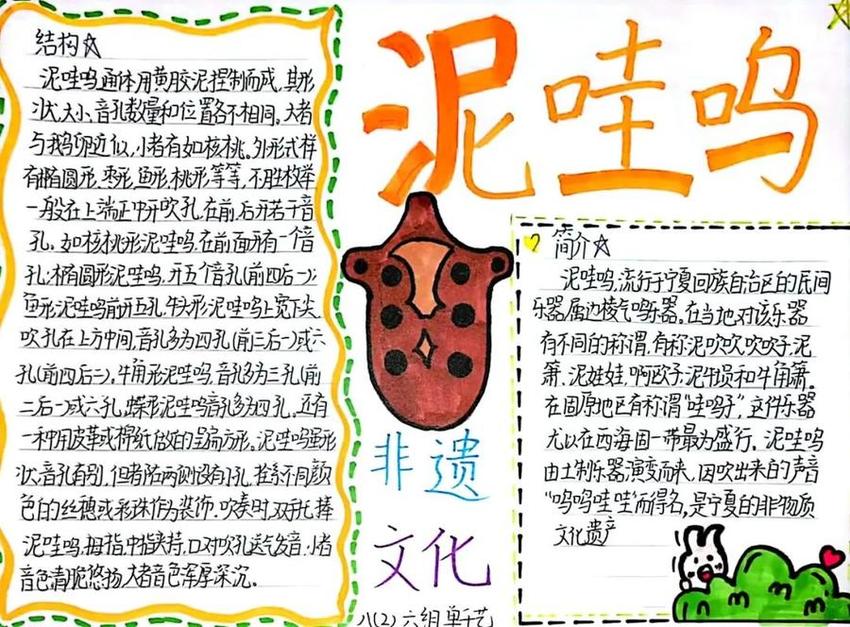 泥哇呜
结构
泥哇呜通体用黄胶泥捏制而成,其形
状、大小、音孔数量和位置各不相同。大者
与鹅卵近似,小者有如核桃。外形式样
有椭圆形、枣形、鱼形、桃形等等,不胜枚举
一般在上端正中开吹孔,在前、后开若干音
孔。如核桃形泥哇呜,在前面开有一个音
孔;椭圆形泥哇呜,开五个音孔(前四后一);
鱼形泥哇呜前开五孔,牛头形泥哇呜上宽下尖,
吹孔在上方中间,音孔多为四孔(前三后一)或六
孔(前四后二)。牛角形泥哇呜,音孔多为三孔(前
二后一)或六孔,蝶形泥哇呜音孔多为四孔。还有
一种用皮革或棉纸做的呈扁方形。泥哇呜虽形
状、音孔有别,但都在两侧设有小孔,拴系不同颜
色的丝穗或彩珠作为装饰。吹奏时,双手托捧
泥哇呜,拇指、中指夹持,口对吹孔送气发音,小者
音色清脆悠扬,大者音色浑厚深沉。
非遗
文化
八(2)六组单芊艺
简介
泥哇呜,流行于宁夏回族自治区的民间
乐器,属边棱气鸣乐器。在当地,对该乐器
有不同的称谓,有称泥吹吹、吹吹子、泥
箫、泥娃娃,啊欧子、泥牛埙和牛角箫。
在固原地区有称谓“哇呜子”,这件乐器
尤以在西海固一带最为盛行。泥哇呜
由土制乐器演变而来,因吹出来的声音
“呜呜哇哇”而得名,是宁夏的非物质
文化遗产